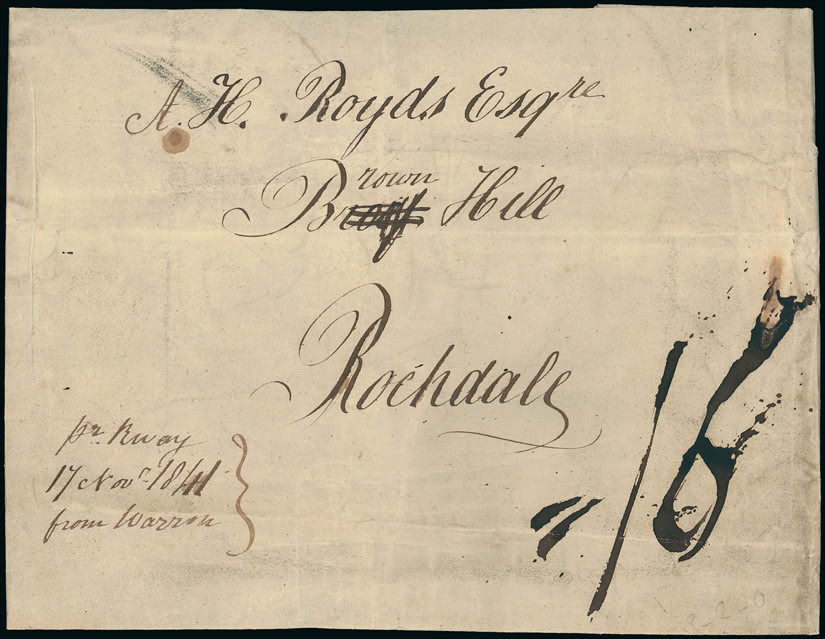 A. H. Royds Esqre
Brown Hill
Rochdale
pr. Rway
17 Novr. 1841
from Warron
"/6